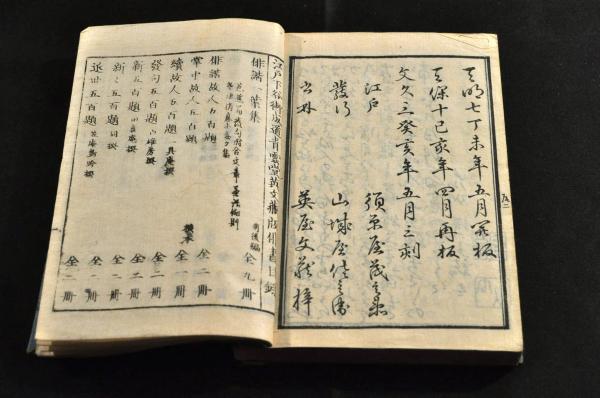 天明七丁未年五月発板
天保十己亥年四月再板
文久三癸亥年五月三刻
江戸 須原屋茂兵衛
発行 山城屋佐兵衛
書林 英屋文蔵梓
五二
江戸下谷御成道青雲堂英文蔵版俳書目録
俳諧一葉集 前後編 全九冊
俳諧故人五百題 全二冊
掌中故人五百題 横本 全一冊
続故人五百題 一具庵撰 全二冊
発句五百題 全二冊
新五百題 全二冊
新々五百題 同撰 全二冊
近世五百題 全二冊